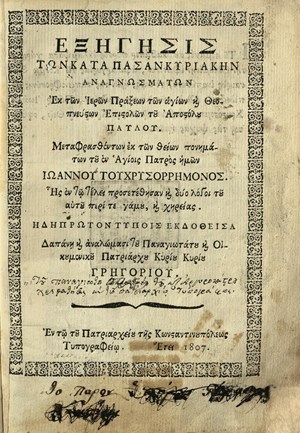 ΕΞΗΓΗΣΙΣ
ΤΩΝ ΚΑΤΑ ΠΑΣΑΝ ΚΥΡΙΑΚΗΝ
ΑΝΑΓΝΩΣΜΑΤΩΝ
Ἐκ τῶν Ἱερῶν Πράξεων τῶν ἁγίων ϗ Θεο-
πνεύςων Ἐπιςολῶν τȣ͂ Ἀποςόλȣ
ΠΑΥΛΟΥ.
Μεταφρασθέντων ἐκ τῶν Θείων πονημά-
των τȣ͂ ἐν Ἁγίοις Πατρὸς ἡμῶν
ΙΩΑΝΝΟΥ ΤΟΥ ΧΡΥΣΟΡΡΗΜΟΝΟΣ.
Ἧς ἐν τῷ τέλει προσετέθησαν ϗ δύο λόγοι τȣ͂
αὐτȣ͂ περί τε γάμȣ, ϗ χηρείας.
ΗΔΗ ΠΡΩΤΟΝ ΤΥΠΟΙΣ ΕΚΔΟΘΕΙΣΑ
Δαπάνῃ ϗ ἀναλώμασι Τȣ͂ Παναγιωτάτȣ ϗ Οἰ-
κȣμενικȣ͂ Πατριάρχȣ Κυρίȣ Κυρίȣ
ΓΡΗΓΟΡΙΟΥ.
Ἐν τῷ τȣ͂ Πατριαρχείȣ τῆς Κωνσαντινȣπόλεως
Τυπογραφείῳ. Ἔτει 1807.